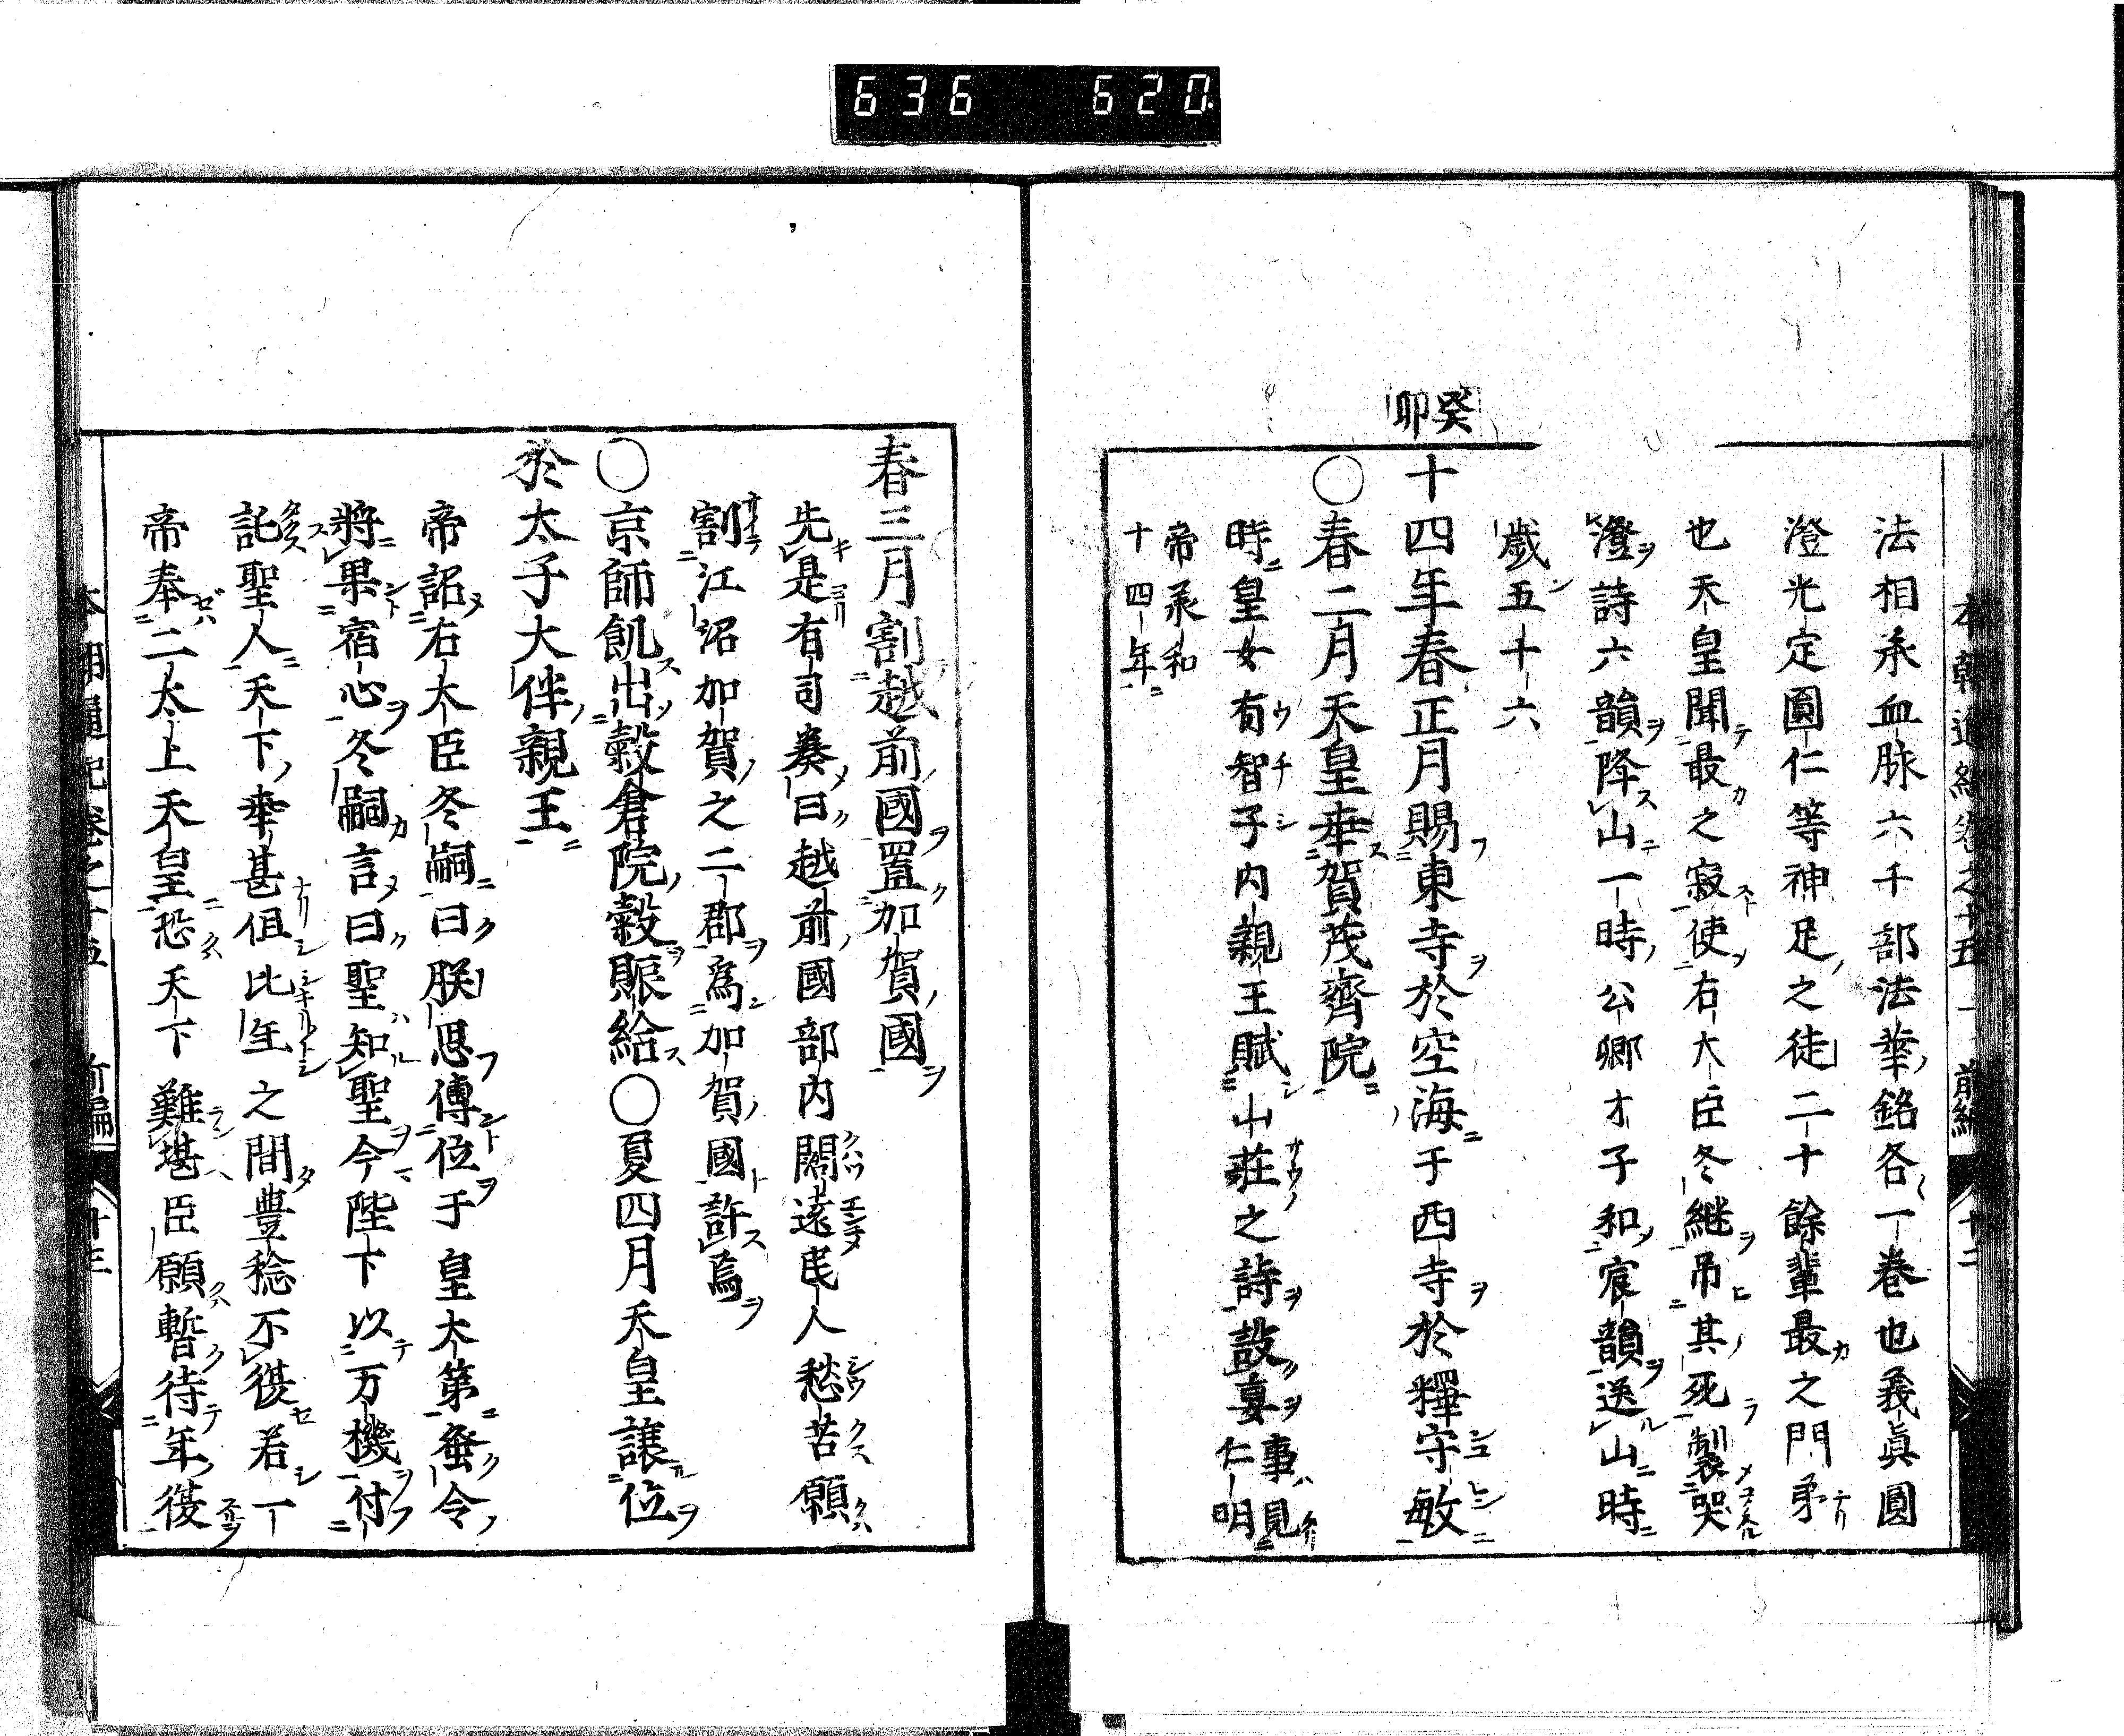 636 620
本朝通紀卷之十五 前編 十二
法相承血脉六千部法華銘各一卷也義眞圓
澄光定圓仁等神足之徒二十餘輩最之門弟
也天皇聞最之寂使右大臣冬継吊其死製哭
澄詩六韻降山一時公卿才子和宸韻送山時
歲五十六
癸卯
十四年春正月賜東寺於空海于西寺於釋守敏
〇春二月天皇幸賀茂齊院
時皇女有智子内親王賦山莊之詩設宴事見仁明
帝承和
十四年
春三月割越前國置加賀國
先是有司奏曰越前國部内闊遠民人愁苦願
割江沼加賀之二郡爲加賀國許焉
〇京師飢出穀倉院穀賑給〇夏四月天皇讓位
於太子大伴親王
帝詔右大臣冬嗣曰朕思傳位于皇太第蚤令
將果宿心冬嗣言曰聖知聖今陛下以万機付
託聖人天下幸甚但比年之間豊稔不復若一
帝奉二太上天皇恐天下難堪臣願暫待年復
本朝通紀卷之十五 前編 十三